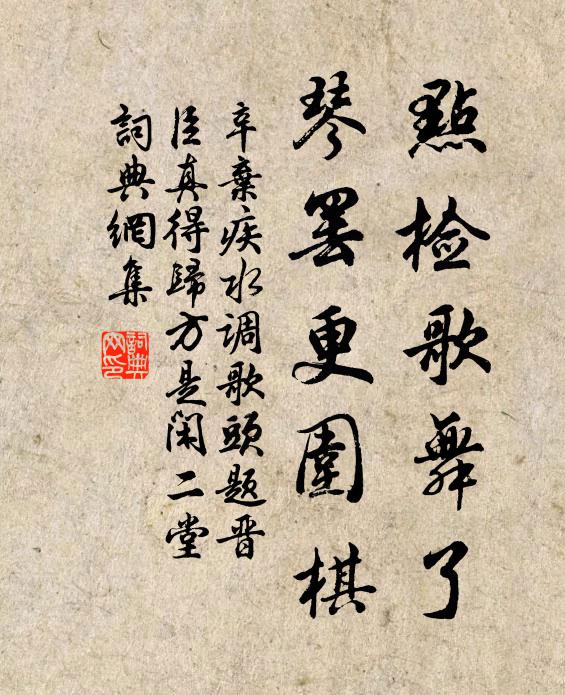 點检歌舞了
琴罢更圍棋
辛棄疾水调歌頭题晋
臣真得歸方是闲二堂
詞典網集
詞典网印